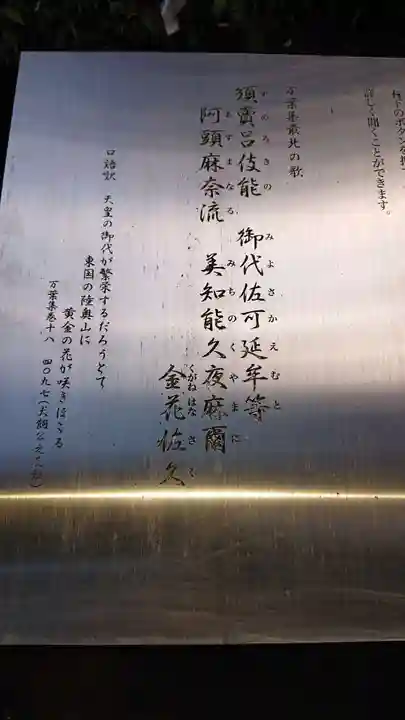 右下のボタンを押
詳しく聞くことができます。
万葉集最北の歌
須賣呂伎能 御代佐可延牟等
すめろきの みよさかえむと
阿頭麻奈流 美知能久夜麻爾
あずまなる みちのくやまに
金花佐久
くがねはなさく
口語訳 天皇の御代が繁栄するだろうとて
東国の陸奥山に
黄金の花が咲きほこる
万葉集巻十八 四〇九七(犬飼公之